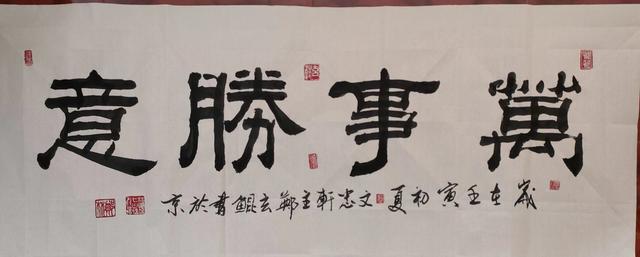 萬事勝意
歲在壬寅初夏文忠軒主鄭玄鯤書於京